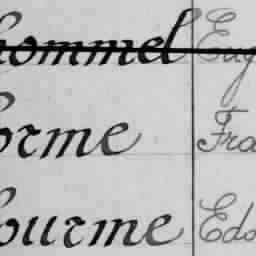 hommel Eug
orme Fra
ourme Edo